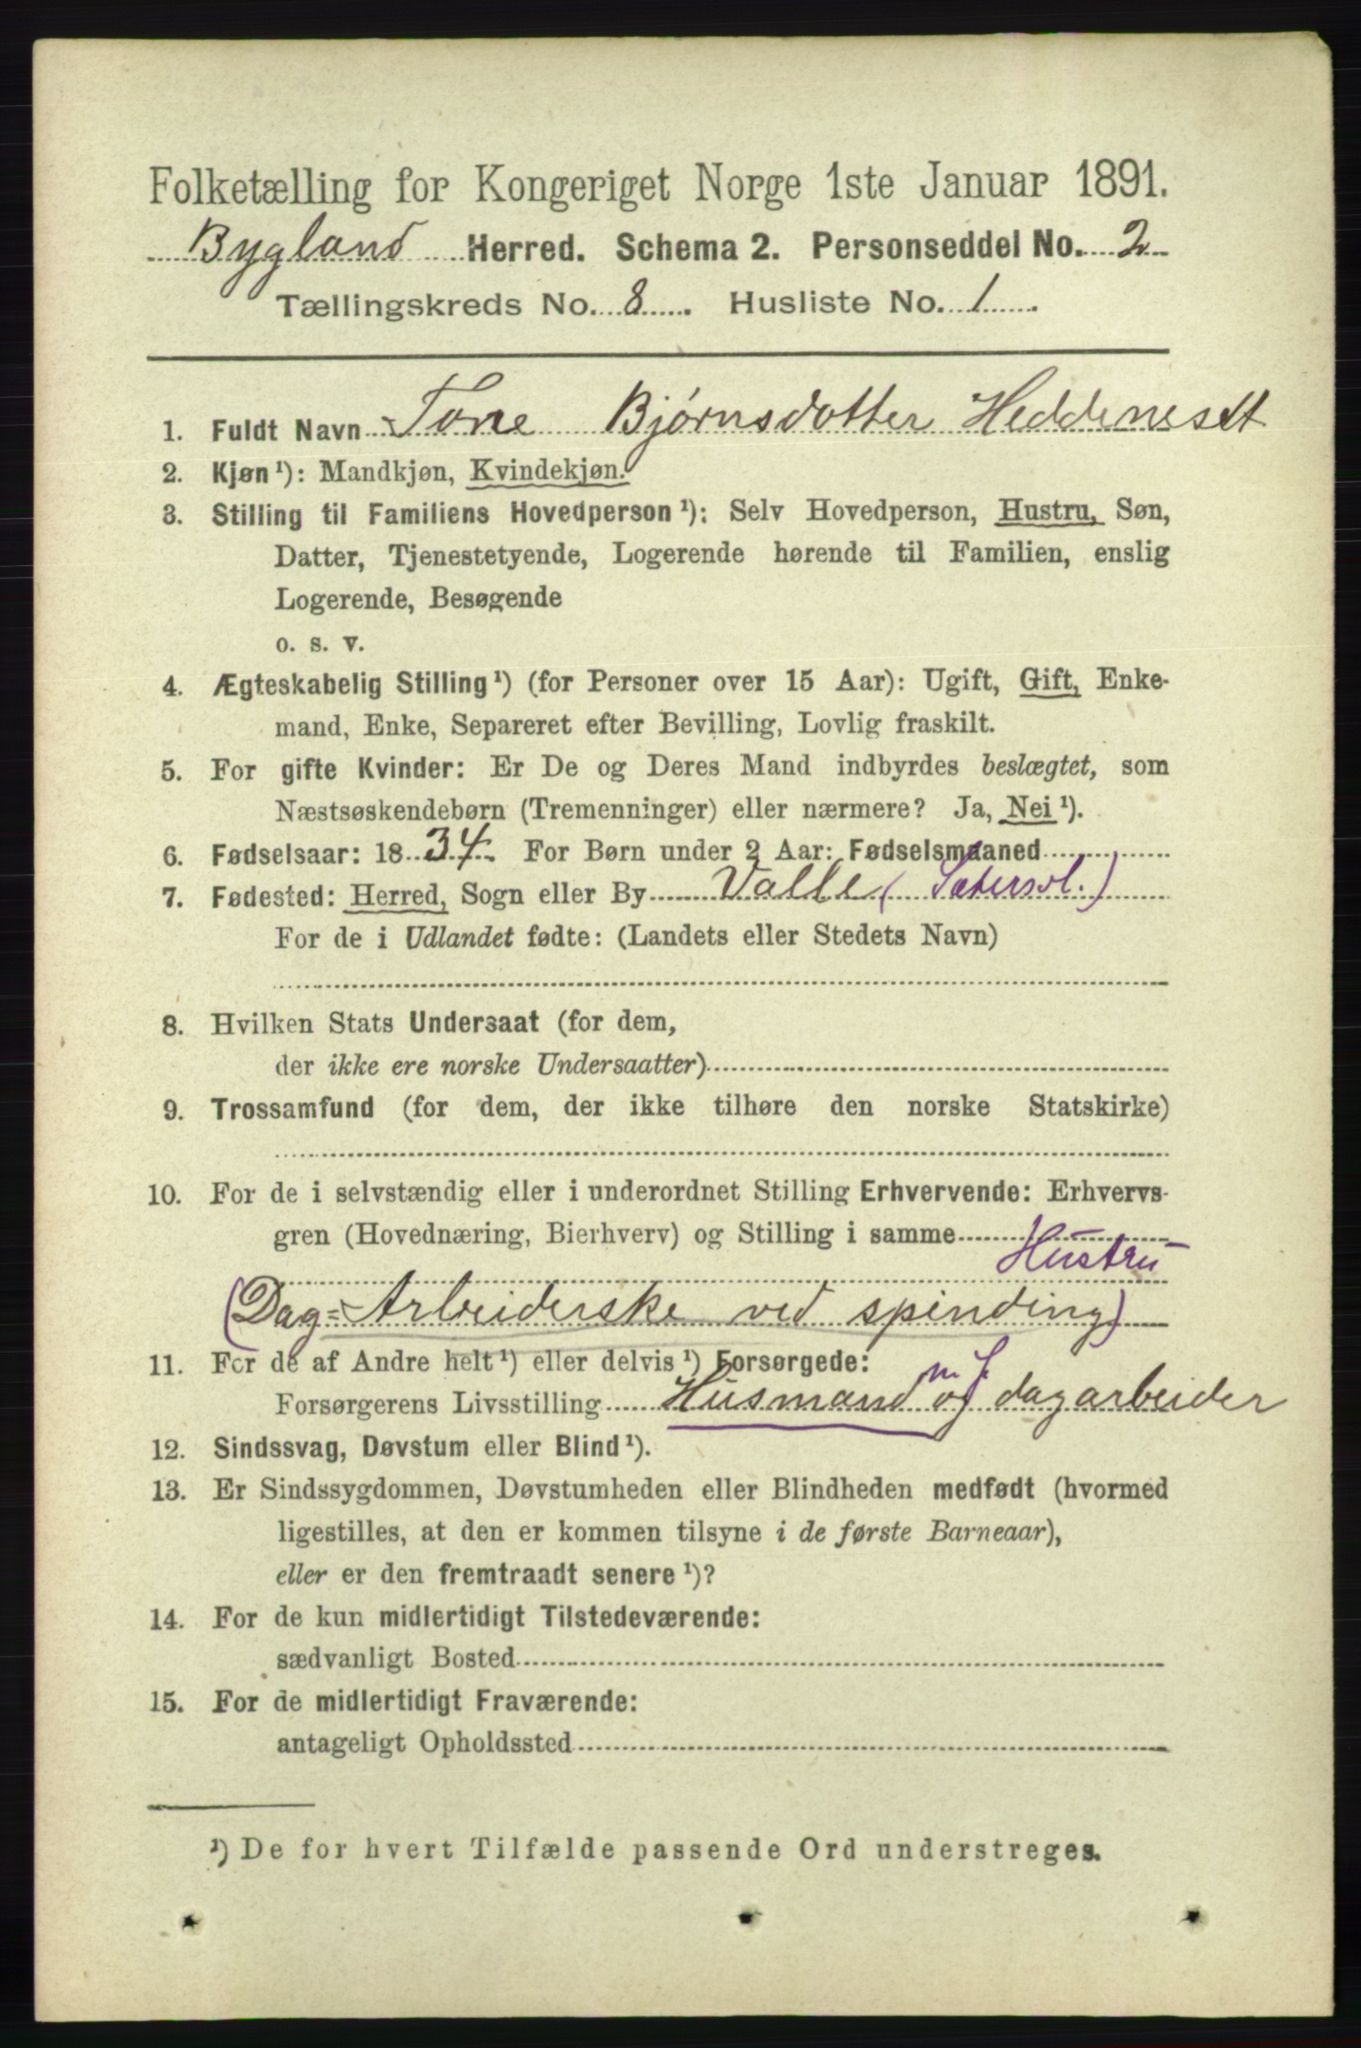 Folketælling for Kongeriget Norge 1ste Januar 1891.
Bygland Herred. Schema 2. Personseddel No. 2
Tællingskreds No. 8. Husliste No. 1
1. Fuldt Navn Tone Bjørnsdotter Heddeneset
2. Kjøn ¹): Mandkjøn, Kvindekjøn.
3. Stilling til Familiens Hovedperson ¹): Selv Hovedperson, Hustru, Søn,
Datter, Tjenestetyende, Logerende hørende til Familien, enslig
Logerende, Besøgende
o. s. v.
4. Ægteskabelig Stilling ¹) (for Personer over 15 Aar): Ugift, Gift, Enke-
mand, Enke, Separeret efter Bevilling, Lovlig fraskilt.
5. For gifte Kvinder: Er De og Deres Mand indbyrdes beslægtet, som
Næstsøskendebørn (Tremenninger) eller nærmere? Ja, Nei ¹).
6. Fødselsaar: 1834. For Børn under 2 Aar: Fødselsmaaned
7. Fødested: Herred, Sogn eller By Valle (Sætersd.)
For de i Udlandet fødte: (Landets eller Stedets Navn)
8. Hvilken Stats Undersaat (for dem,
der ikke ere norske Undersaatter)
9. Trossamfund (for dem, der ikke tilhøre den norske Statskirke)
10. For de i selvstændig eller i underordnet Stilling Erhvervende: Erhvervs-
gren (Hovednæring, Bierhverv) og Stilling i samme
Hustru
(Dag=Arbeiderske ved spinding)
11. For de af Andre helt ¹) eller delvis ¹) Forsørgede:
m. J.
Forsørgerens Livsstilling Husmand og dagarbeider
12. Sindssvag, Døvstum eller Blind ¹).
13. Er Sindssygdommen, Døvstumheden eller Blindheden medfødt (hvormed
ligestilles, at den er kommen tilsyne i de første Barneaar),
eller er den fremtraadt senere ¹)?
14. For de kun midlertidigt Tilstedeværende:
sædvanligt Bosted
15. For de midlertidigt Fraværende:
antageligt Opholdssted
¹) De for hvert Tilfælde passende Ord understreges.